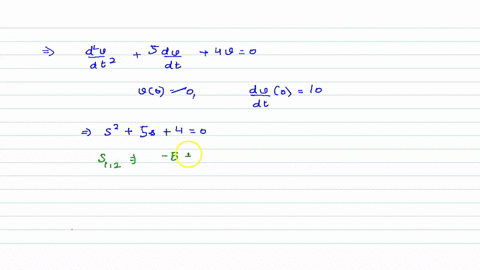 ⇒ d²v/dt² + 5 dv/dt + 4v = 0
v(0) = 0, dv/dt (0) = 10
⇒ s² + 5s + 4 = 0
S₁,₂ ⇒ -5 ±